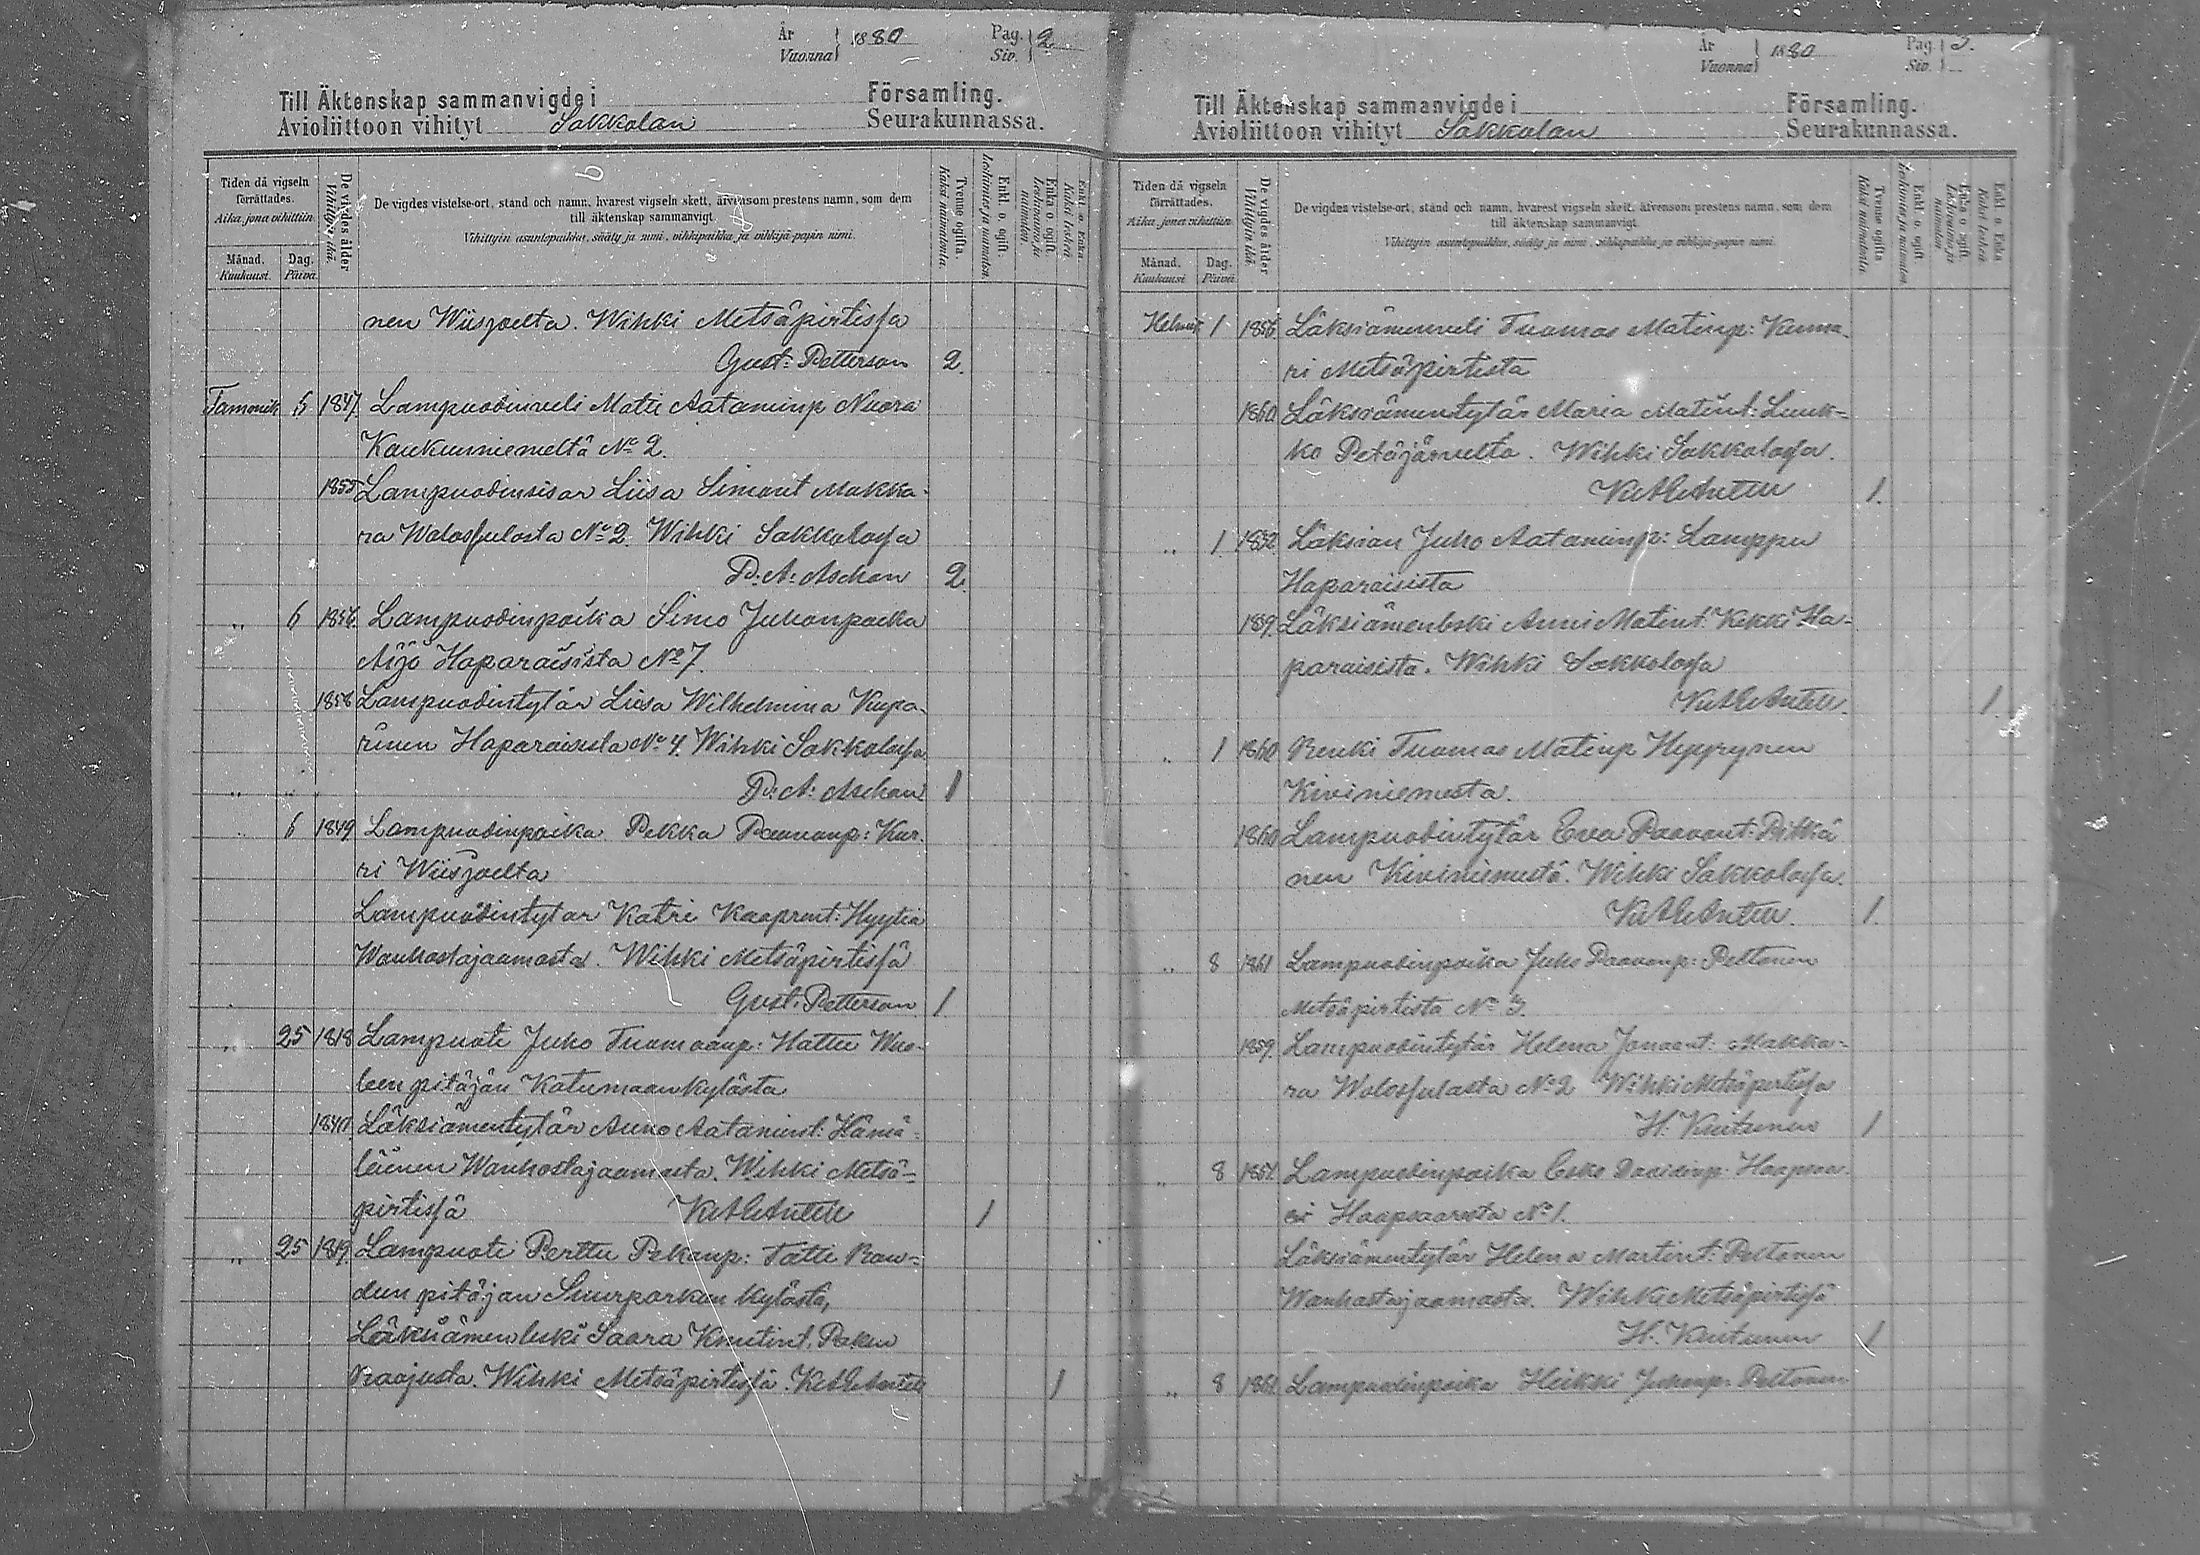 År
Vuonna } 1880
Pag.
Siv. } 2
Till Äktenskap sammanvigde i Församling.
Avioliittoon vihityt Sakkolan Seurakunnassa.
Tiden då vigseln förrättades.
Aika, jona vihittiin.
Månad.
Kuukausi.
Dag.
Päivä.
De vigdes ålder
Vihittyin ikä.
De vigdes vistelse-ort, stånd och namn, hvarest vigseln skett, äfvensom prestens namn, som dem
till äktenskap sammanvigt.
Vihittyin asuntopaikka, sääty ja nimi, vihkipaikka ja vihkijä-papin nimi.
Tvenne ogifta.
Kaksi naimatonta.
Enkl. o. ogift.
Leskimies ja naimaton.
Enka o. ogift.
Leskivaimo ja naimaton.
Enkl. o. Enka.
Kaksi leskeä.
nen Wiisjoelta. Wihki Metsäpirtissa
Gust: Petterson 2.
Tammik. 5 1847. Lampuodinveli Matti Aataminp Nuora
Kaukunniemeltä No 2.
1855 Lampuodinsisar Liisa Simont Makka-
ra Walossulasta No 2. Wihki Sakkolassa
D: A: Aschan 2.
„ 6 1856. Lampuodinpoika Simo Juhonpoika
Äijö Haparaisista No 7.
1858 Lampuodintytär Liisa Wilhelmina Kupa-
rinen Haparaisista No 4. Wihki Sakkolassa
D: A: Aschan 1
6 1849. Lampuodinpoika Pekka Paavonp: Kur-
ri Wiisjoelta
Lampuodintytar Katri Kaaprent: Hyytiä
Wanhastajaamasta. Wihki Metsäpirtissä
Gust. Petterson 1
„ 25 1818 Lampuoti Juho Tuomaanp: Hattu Wuo-
leen pitäjän Katumaan kylästa
1840. Läksiämentytär Anno Aatamint: Hämä-
läinen Wanhastajaamasta. Wihki Metsä-
pirtissä 1
„ 25 1819. Lampuoti Perttu Pekanp: Tatti Rau-
dun pitäjan Suurporkun kylästä,
Läksiämenleski Saara Knutint. Paken
Raajusta. Wihki Metsäpirtissä. 1
År
Vuonna } 1880
Pag.
Siv. } 3.
Till Äktenskap sammanvigde i Församling.
Avioliittoon vihityt Sakkolan Seurakunnassa.
Tiden då vigseln förrättades.
Aika, jona vihittiin.
Månad.
Kuukausi.
Dag.
Päivä.
De vigdes ålder
Vihittyin ikä.
De vigdes vistelse-ort, stånd och namn, hvarest vigseln skett, äfvensom prestens namn, som dem
till äktenskap sammanvigt.
Vihittyin asuntopaikka, sääty ja nimi, vihkipaikka ja vihkijä-papin nimi.
Tvenne ogifta
Kaksi naimatonta.
Enkl. o. ogift.
Leskimies ja naimaton
Enka o. ogift.
Leskivaimo ja naimaton.
Enkl. o. Enka
Kaksi leskeä.
Helmik 1 1856. Läksiämenveli Tuomas Matinp: Kunna-
ri Metsäpirtista
1860. Läksiämentytär Maria Matint: Luuk-
ko Petäjärvelta. Wihki Sakkolassa.
1.
„ 1 1832. Läksiän Juho Aataminp: Lamppu
Haparaisista
Läksiämenleski Anni Matint: Kekki Ha-
paraisista. Wihki Sakkolassa
1.
„ 1 1860. Renki Tuomas Matinp Hyyrynen
Kiviniemesta.
1860 Lampuodintytär Eva Paavont: Pitkä
nen Kiviniemestä. Wihki Sakkolassa.
1.
„ 8 1861 Lampuodinpoika Juho Paavonp: Peltonen
Metsäpirtista No 3.
1859. Lampuodintytär Helena Jonaant: Makka-
ra Walossulasta No 2 Wihki Metsäpirtissa
H. Kiutunen 1
„ 8 Lampuodinpoika Esko Daavidinp: Haapsaa-
ri Haapsaaresta No 1.
Läksiämentytär Helena Martint: Peltonen
Wanhastajaamasta. Wihki Metsäpirtissä
H. Kiutunen 1
„ 8 1861. Lampuodinpoika Heikki Juhonp: Peltonen